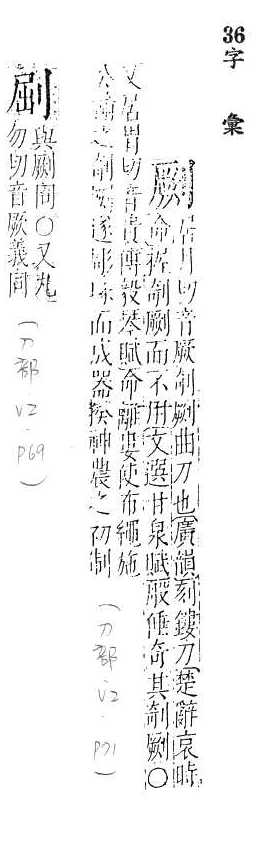 36字 彙
劂 居月切音厥剞劂曲刀也廣韻刻鏤刀楚辭哀時
命握剞劂而不用文選甘泉賦般倕奇其剞劂〇
又居胃切音貴傅毅琴賦命離婁使布繩施
公輸之剞劂遂彫琢而成器揆神農之初制
(刀部 V2 · P71)
與劂同〇又九
勿切音厥義同
(刀部 V2 · P69)